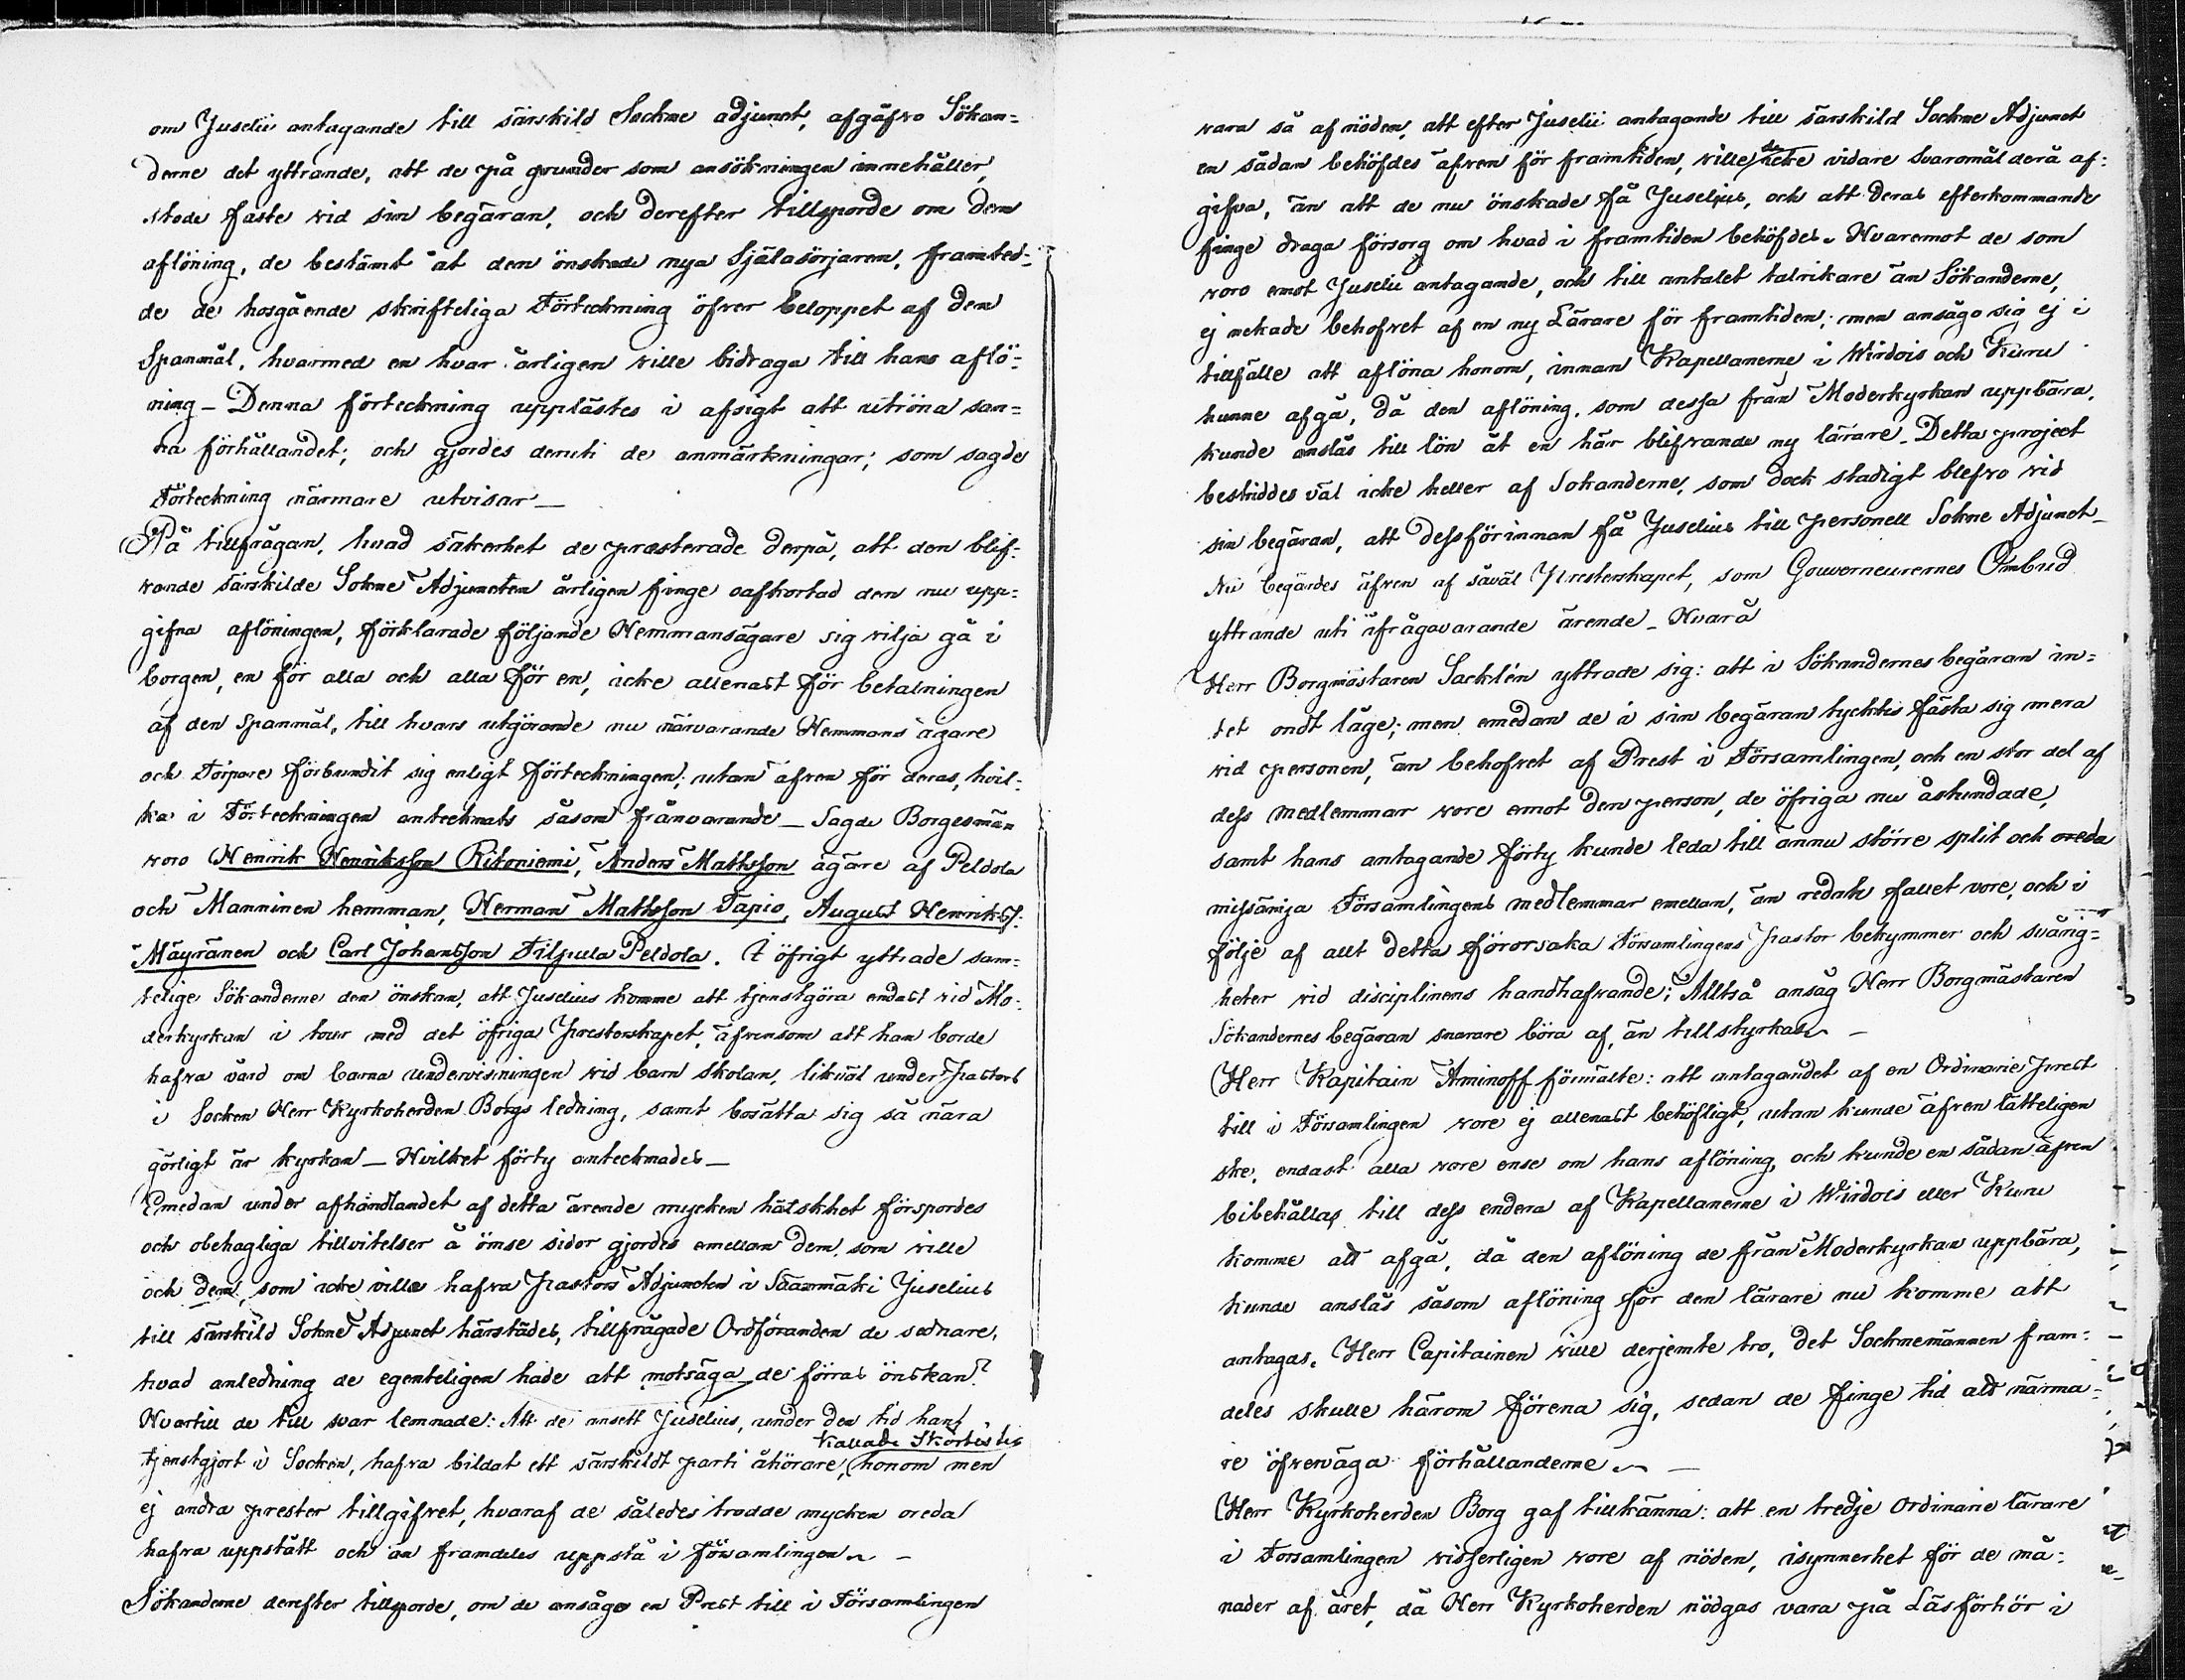 om Juselii antagande till särskild Sockne adjunct, afgåfvo Sökan=
derne det yttrande, att de på grunder som ansökningen innehåller,
stode faste vid sin begäran, och derefter tillsporde om den
aflöning, de bestämt åt den önskade nya Själasörjaren, framted-
de de hosgående skrifteliga Förteckning öfver beloppet af den
Spanmål, hvarmed en hvar årligen ville bidraga till hans aflö-
ning – Denna förteckning upplästes i afsigt att utröna san=
na förhållandet; och gjordes deruti de anmärkningar; som sagde
Förteckning närmare utvisar –
På tillfrågan, hvad säkerhet de præsterade derpå, att den blif-
vande särskilde Sokne Adjuncten årligen finge oafkortad den nu upp=
gifna aflöningen, förklarade följande Hemmansägare sig vilja gå i
borgen, en för alla och alla för en, icke allenast för betalningen
af den spanmål, till hvars utgörande nu närvarande Hemmans ägare
och Torpare förbundit sig enligt förteckningen; utan äfven för deras, hvil-
ka i Förteckningen antecknats såsom frånvarande – Sagde Borgesmän
voro Henrik Henriksson Ritoniemi, Anders Mattsson ägare af Peldola
och Manninen hemman, Herman Mattsson Tapio, August Henrikss:
Mäyränen och Carl Johansson Filpula Peldola. I öfrigt yttrade sam-
telige Sökanderne den önskan, att Juselius komme att tjenstgöra endast vid Mo-
derkyrkan i tour med det öfriga Presterskapet, äfvensom att han borde
hafva vård om barna undervisningen vid barn skolan, likväl under Pastors
i Socken Herr Kyrkoherden Borgs ledning, samt bosätta sig så nära
görligt är kyrkan – Hvilket förty antecknades –
Emedan under afhandlandet af detta ärende mycken hätskhet förspordes
och obehagliga tillvitelser å ömse sidor gjordes emellan dem, som ville
och dem, som icke ville hafva Pastors Adjuncten i Sääxmäki Juselius
till särskild Sokne Adjunct härstädes, tillfrågade Ordföranden de sednare,
hvad anledning de egenteligen hade att motsäga de förras önskan?
Hvartill de till svar lemnade: Att de ansett Juselius, under den tid han
kallade Skörtister
tjenstgjort i Socken, hafva bildat ett särskildt parti åhörare, honom men
ej andra prester tillgifvet, hvaraf de således trodde mycken oreda
hafva uppstått och än framdeles uppstå i församlingen –
Sökanderne derefter tillsporde, om de ansågo en Prest till i Församlingen
vara så af nöden, att efter Juselii antagande till särskild Sockne Adjunct
en sådan behöfdes äfven för framtiden, ville de icke vidare Svaromål derå af-
gifva, än att de nu önskade få Juselius, och att deras efterkommande
finge draga försorg om hvad i framtiden behöfdes. Hvaremot de som
voro emot Juselii antagande, och till antalet talrikare än Sökanderne,
ej nekade behofvet af en ny Lärare för framtiden; men ansågo sig ej i
tillfälle att aflöna honom, innan Kapellanerne i Wirdois och Kuru
hunne afgå, då den aflöning, som dessa från Moderkyrkan uppbära,
kunde anslås till lön åt en här blifvande ny lärare. Detta project
bestriddes väl icke heller af Sokanderne, som dock stadigt blefvo vid
sin begäran, att dessförinnan få Juselius till personell Sokne Adjunct –
Nu begärdes äfven af såväl Presterskapet, som Gouverneurernes Ombud
yttrande uti ifrågavarande ärende – Hvarå
Herr Borgmästaren Sacklén yttrade sig: att i Sökandernes begäran in=
tet ondt låge; men emedan de i sin begäran tycktes fästa sig mera
vid personen, än behofvet af Prest i Församlingen, och en stor del af
dess medlemmar vore emot den person, de öfriga nu åstundade,
samt hans antagande förty kunde leda till ännu större split och oreda
missämja Församlingens medlemmar emellan, än redan fallet vore, och i
följe af allt detta förorsaka Församlingens Pastor bekymmer och svårig=
heter vid disciplinens handhafvande; Alltså ansåg Herr Borgmästaren
Sökandernes begäran snarare böra af, än tillstyrkas –
Herr Kapitain Aminoff förmälte: att antagandet af en Ordinarie Prest
till i Församlingen vore ej allenast behöfligt, utan kunde äfven lätteligen
ske, endast alla vore ense om hans aflöning, och kunde en sådan äfven
bibehållas till dess endera af Kapellanerne i Wirdois eller Kuru
komme att afgå, då den aflöning de från Moderkyrkan uppbära,
kunde anslås såsom aflöning för den lärare nu komme att
antagas. Herr Capitainen ville derjemte tro, det Socknemännen fram-
deles skulle härom förena sig, sedan de finge tid att närma-
re öfverväga förhållanderne –
Herr Kyrkoherden Borg gaf tillkänna: att en tredje Ordinarie lärare
i Forsamlingen visserligen vore af nöden, isynnerhet för de må-
nader af året, då Herr Kyrkoherden nödgas vara på Läsförhör i